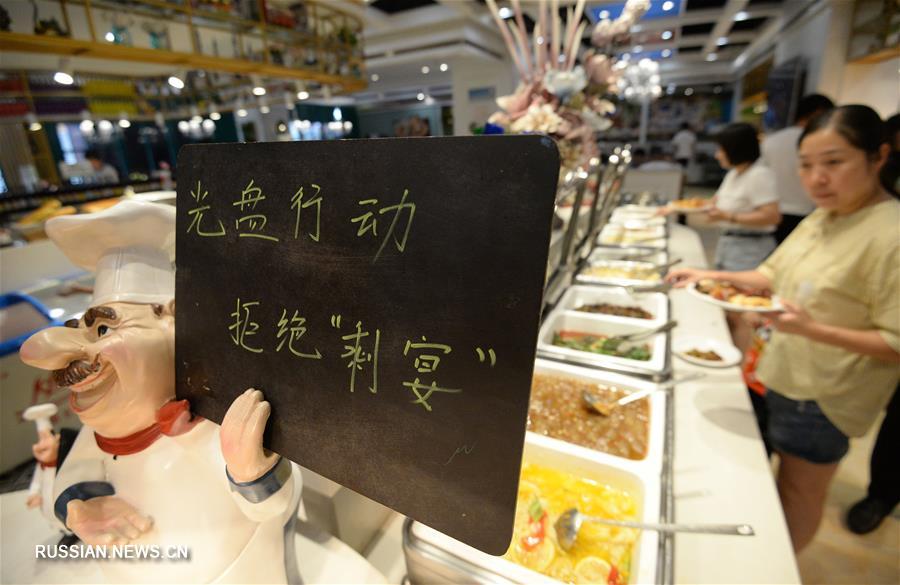 光盘行动
拒绝"剩宴"
RUSSIAN.NEWS.CN